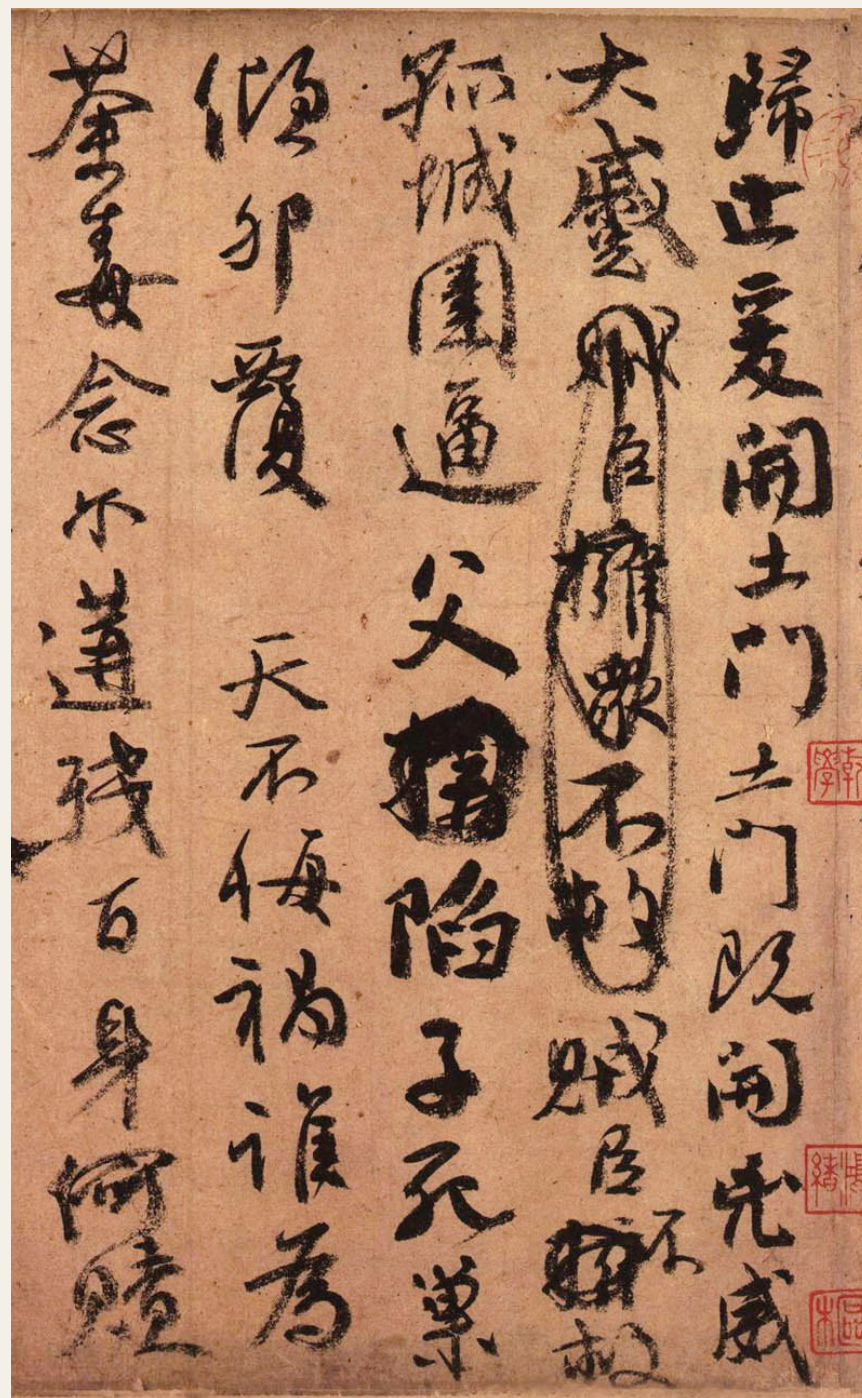 歸止爰開土門土門既開兇威
大蹙賊臣擁衆不救賊臣不救
孤城圍逼父陷子死巢
傾卵覆天不悔禍誰為
荼毒念尔遘殘百身何贖